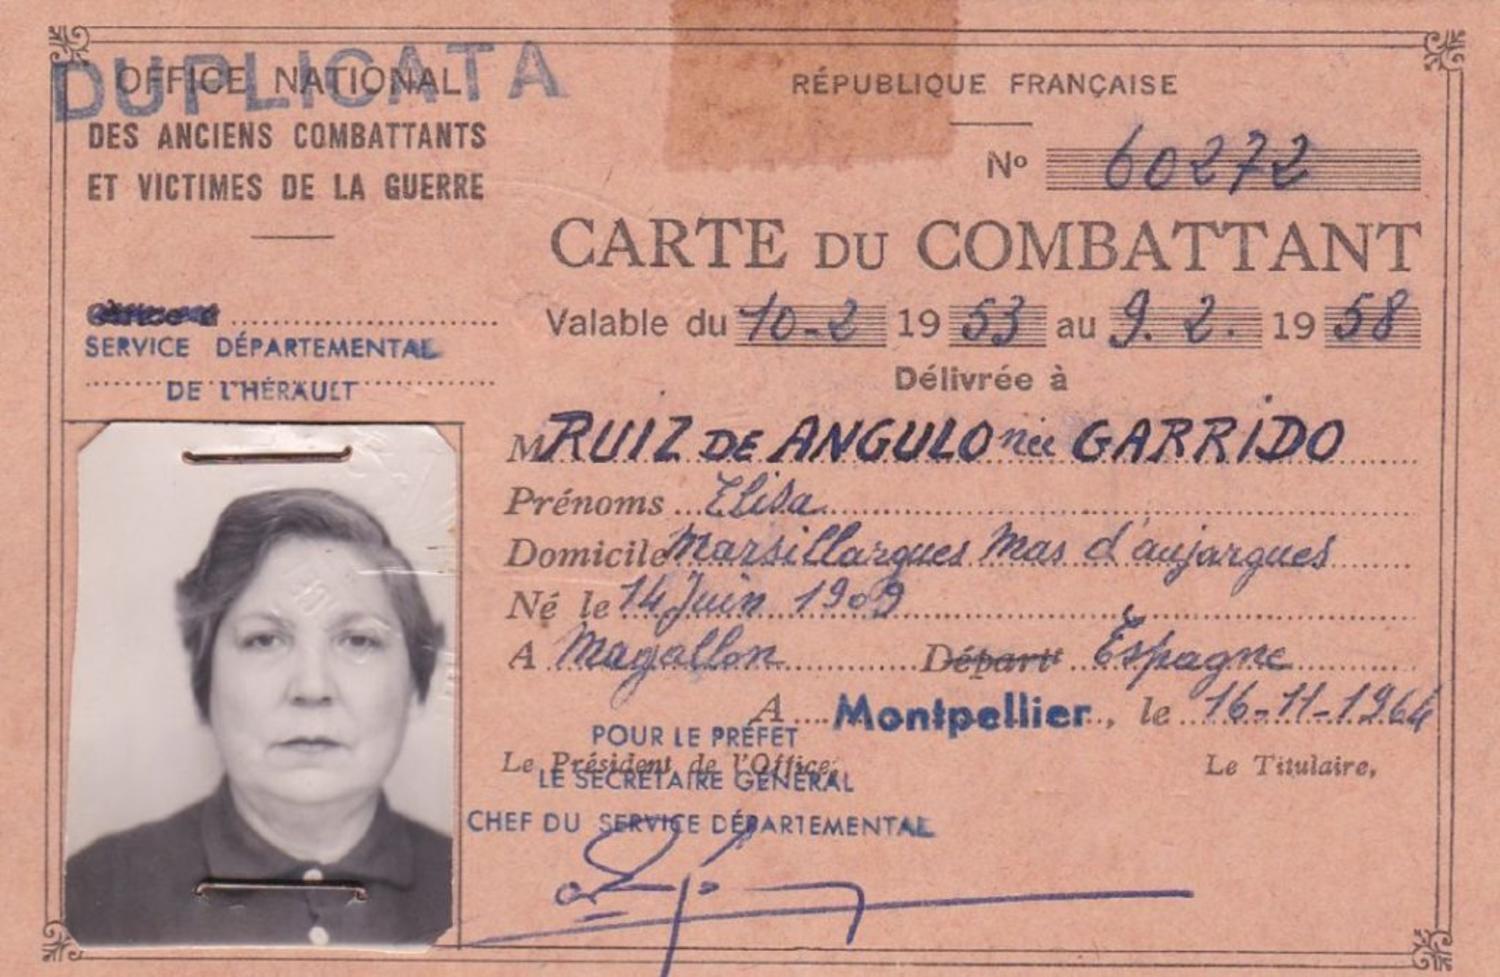 DUPLICATA
OFFICE NATIONAL
DES ANCIENS COMBATTANTS
ET VICTIMES DE LA GUERRE
SERVICE DÉPARTEMENTAL
DE L'HÉRAULT
RÉPUBLIQUE FRANÇAISE
No 60272
CARTE DU COMBATTANT
Valable du 10-2 1953 au 9.2. 1958
Délivrée à
M RUIZ DE ANGULO née GARRIDO
Prénoms Elisa
Domicile Marsillargues Mas d'aujargues
Né le 14 Juin 1909
A Magallon Départt Espagne
A Montpellier, le 16-11-1964
POUR LE PRÉFET
Le Président de l'Office, Le Titulaire,
LE SECRÉTAIRE GÉNÉRAL
CHEF DU SERVICE DÉPARTEMENTAL